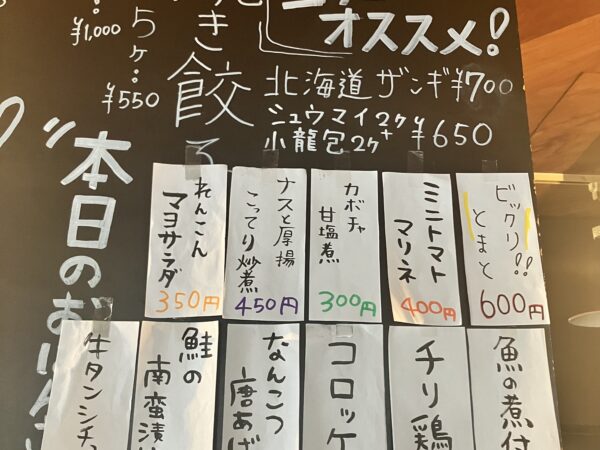 オススメ!
北海道 ザンギ ¥700
シュウマイ2ケ+
小龍包2ケ ¥650
き餃
5ケ:
¥550
¥1,000
本日のお
ビックリ!!
とまと
600円
ミニトマト
マリネ
400円
カボチャ
甘塩煮
300円
ナスと厚揚
こってり炒煮
450円
れんこん
マヨサラダ
350円
魚の煮付
チリ鶏
コロッケ
なんこつ
唐あげ
鮭の
南蛮漬
牛タンシチ